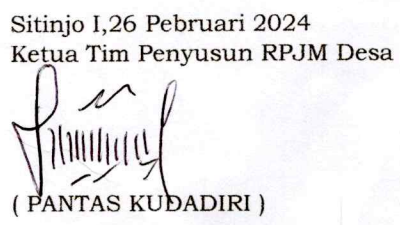 Sitinjo I,26 Pebruari 2024
Ketua Tim Penyusun RPJM Desa
( PANTAS KUDADIRI )